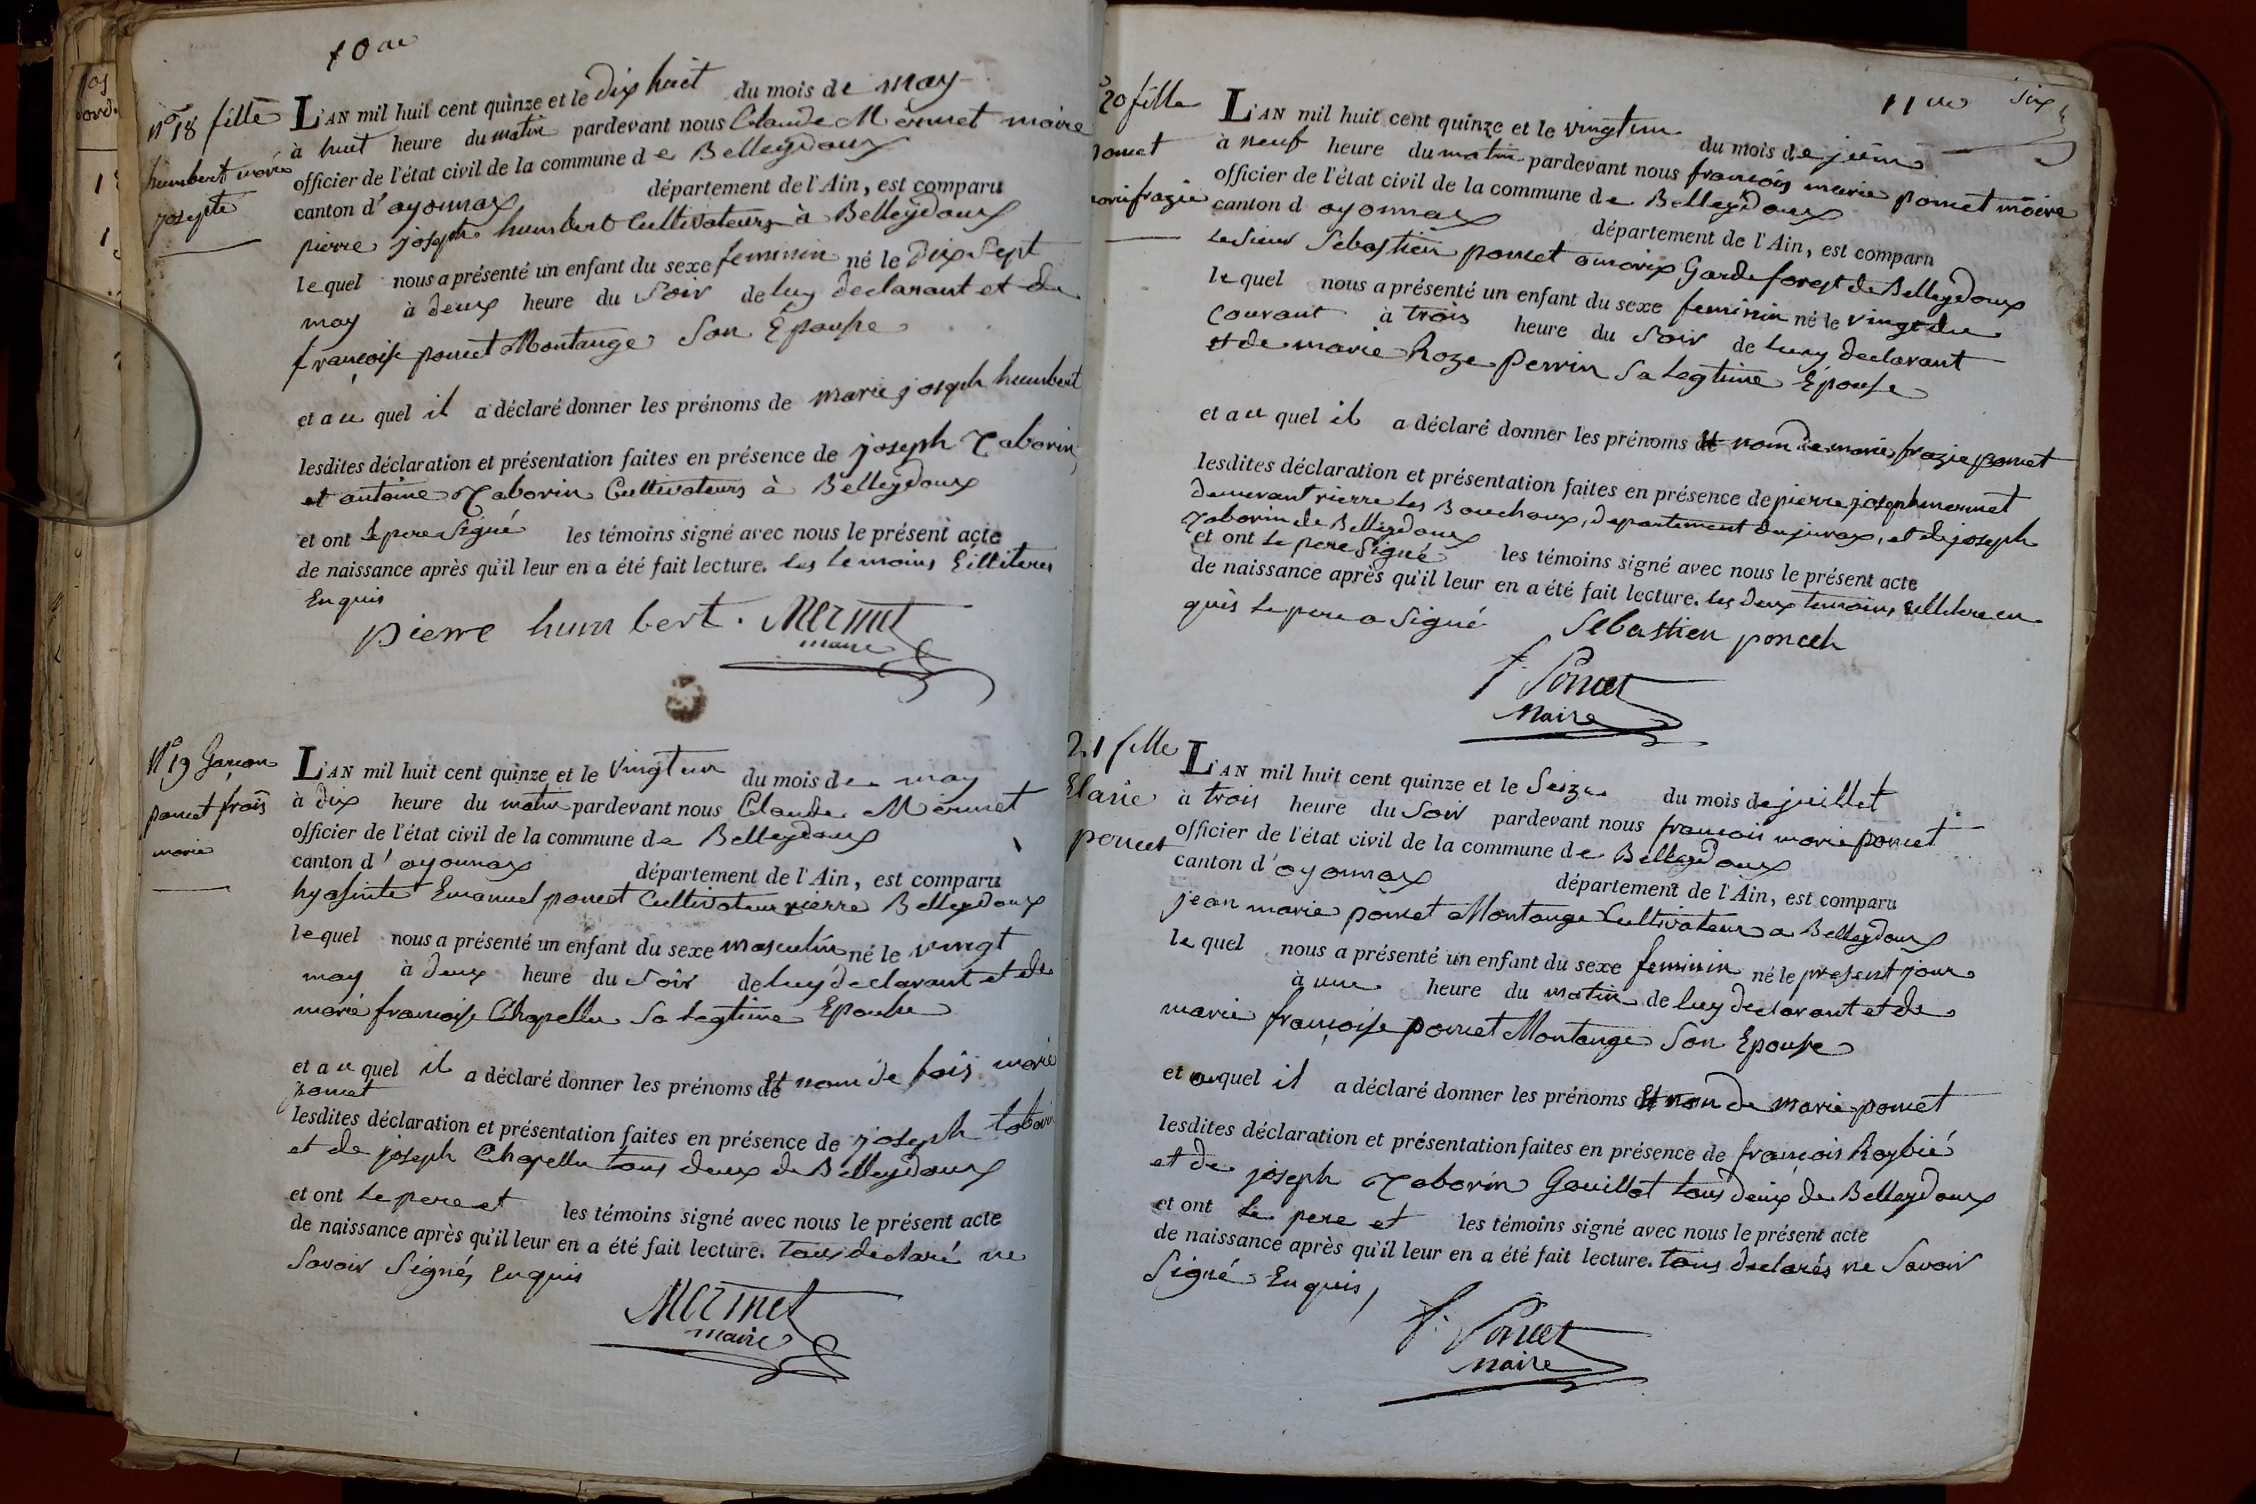 10me
No 18 fille
humbert marie
josephe
L'AN mil huit cent quinze et le dix huit du mois de may
à huit heure du matin pardevant nous Claude Mermet maire
officier de l'état civil de la commune de Belleydoux
canton d'oyonnax département de l'Ain, est comparu
pierre joseph humbert Cultivateurs à Belleydoux
lequel nous a présenté un enfant du sexe feminin né le Dix Sept
may à deux heure du Soir de luy declarant et de
françoise poncet Montange Son Epouse
et au quel il a déclaré donner les prénoms de marie joseph humbert
lesdites déclaration et présentation faites en présence de joseph Taborin
et antoine Taborin Cultivateurs à Belleydoux
et ont le pere Signé les témoins signé avec nous le présent acte
de naissance après qu'il leur en a été fait lecture. les temoins Eilliteres
Enquis
pierre humbert. Mermet
maire
No 19 Garcon
poncet frois
marie
L'AN mil huit cent quinze et le vingt un du mois de may
à dix heure du matin pardevant nous Claude Mermet
officier de l'état civil de la commune de Belleydoux
canton d'oyonnax département de l'Ain, est comparu
hyasinte Emanuel poncet Cultivateur rierre Belleydoux
lequel nous a présenté un enfant du sexe masculin né le vingt
may à deux heure du Soir de luy declarant et de
marie francoise Chapellu Sa Legtime Epouse
et au quel il a déclaré donner les prénoms et nom de fois marie
poncet
lesdites déclaration et présentation faites en présence de joseph tabori
et de joseph Chapellu tous deux de Belleydoux
et ont le pere et les témoins signé avec nous le présent acte
de naissance après qu'il leur en a été fait lecture. tous declaré ne
Savoir Signés Enquis
Mermet
maire
11me Six
20 fille
poncet
marie frazie
L'AN mil huit cent quinze et le vingt un du mois de juin
à neuf heure du matin pardevant nous francois marie poncet maire
officier de l'état civil de la commune de Belleydoux
canton d oyonnax département de l'Ain, est comparu
Le Sieur Sebastien poncet amorix Garde forest de Belleydoux
lequel nous a présenté un enfant du sexe feminin né le vingt du
Courant à trois heure du Soir de luy declarant
et de marie Roze perrin Sa Legtime Epouse
et au quel il a déclaré donner les prénoms et nom de marie frazie poncet
lesdites déclaration et présentation faites en présence de pierre joseph mermet
demeurant rierre les Bouchoux, departement du jurax, et de joseph
Taborin de Belleydoux
et ont le pere Signé les témoins signé avec nous le présent acte
de naissance après qu'il leur en a été fait lecture. les deux temoins illitere en
quis Le pere a Signé
Sebastien poncet
f. Poncet
Maire
21 fille
Marie
poncet
L'AN mil huit cent quinze et le Seize du mois de juillet
à trois heure du Soir pardevant nous francois marie poncet
officier de l'état civil de la commune de Belleydoux
canton d'oyonnax département de l'Ain, est comparu
jean marie poncet Montange Cultivateur a Belleydoux
lequel nous a présenté un enfant du sexe feminin né le present jour
à une heure du matin de luy declarant et de
marie françoise poncet Montange Son Epouse
et au quel il a déclaré donner les prénoms et nom de marie poncet
lesdites déclaration et présentation faites en présence de francois Roybié
et de joseph Taborin Gouillot tous deux de Belleydoux
et ont le pere et les témoins signé avec nous le présent acte
de naissance après qu'il leur en a été fait lecture. tous declarés ne Savoir
Signé Enquis,
f. Poncet
Maire